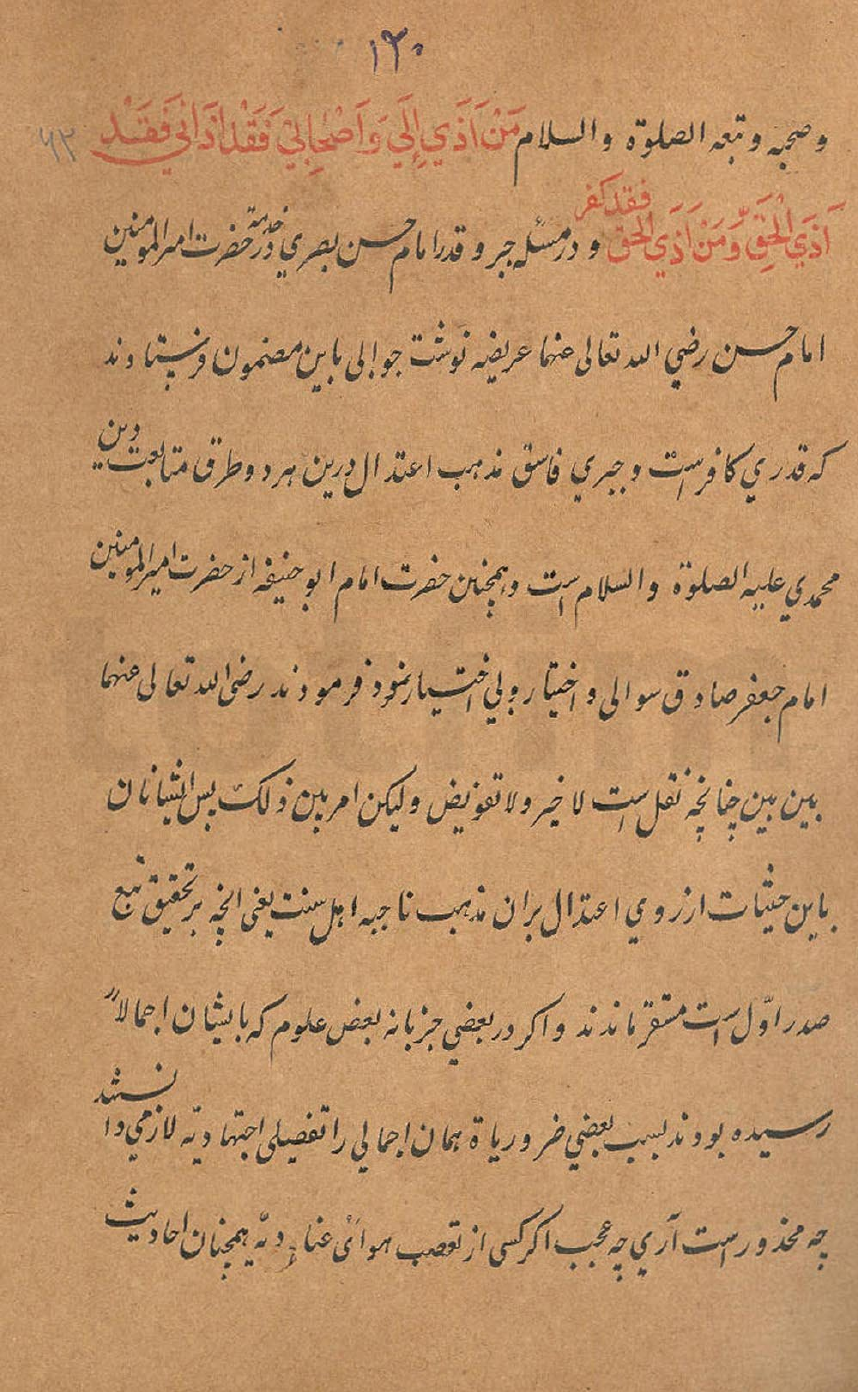 ۱۲۰
۶۲
وصحبه وتبعه الصلوة والسلام مَنْ اَذَي اِلَي وَاَصْحَابِي فَقَدْ اَذَانِي فَقَدْ
اَذَي الْحَقَ وَّمَنْ اَذَي الحق فقد كفر و در مسئله جبر و قدر امام حسن بصري در خدمة حضرت امير المومنين
امام حسن رضي الله تعالى عنهما عريضه نوشت جوابى باين مضمون فرستادند
که قدري کافر است و جبري فاسق مذهب اعتدال درين هر دو طرق متابعت دين
محمدي عليه الصلوة والسلام است و همچنين حضرت امام ابو حنيفه از حضرت امير المومنين
امام جعفر صادق سوالى و اختيار و بى اختيار نمود فرمودند رضى الله تعالى عنهما
بين بين چنانچه نقل است لا خير ولا تفويض وليكن امر بين ذلك بس ايشانان
باين حيثيات از روي اعتدال بران مذهب ناجيه اهل سنت يعنى انچه بر تحقيق تبع
صدر اوّل است مستقر ماندند و اکر در بعضي جزبانه بعض علوم که بايشان اجمالاً
رسيده بودند بسبب بعضي ضرورياة همان اجمالي را تفصيلى اجتهاديّه لازمي دانستند
چه محذور است آري چه عجب اکر کسى از تعصب هوائى عناديّه همچنان احاديث